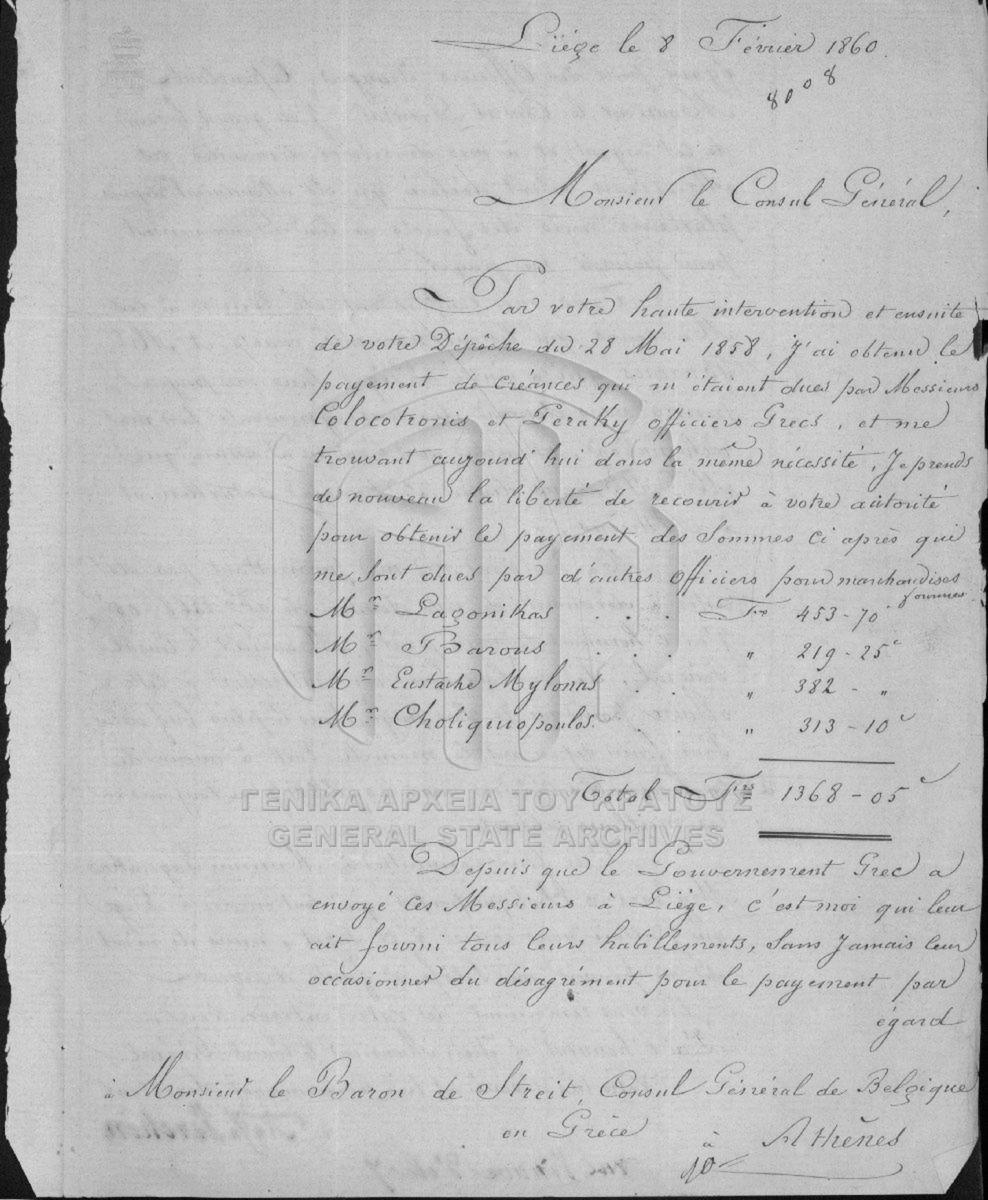 Liége le 8 Février 1860.
8008
Monsieur le Consul Général,
Par votre haute intervention et ensuite
de votre Dépêche du 28 Mai 1858, J'ai obtenu le
payement de créances qui m'étaient dues par Messieurs
Colocotronis et Peraky officiers Grecs, et me
trouvant aujourd'hui dans la même nécessité, Je prends
de nouveau la liberté de recourir à votre autorité
pour obtenir le payement des Sommes ci après qui
me sont dues par d'autres officiers pour marchandises
fournies
Mr Lagonikas . . . Frs 453-70c
Mr Barous . . . " 219-25c
Mr Eustache Mylonas . . " 382 - "
Mr Choliquiopoulos. . . " 313-10c
Total Frs 1368-05c
ΓΕΝΙΚΑ ΑΡΧΕΙΑ ΤΟΥ ΚΡΑΤΟΥΣ
GENERAL STATE ARCHIVES
Depuis que le Gouvernement Grec a
envoyé ces Messieurs à Liége, c'est moi qui leur
ait fourni tous leurs habillements, sans Jamais leur
occasionner du désagrément pour le payement par
égard
à Monsieur le Baron de Streit, Consul Général de Belgique
en Grèce
à Athènes